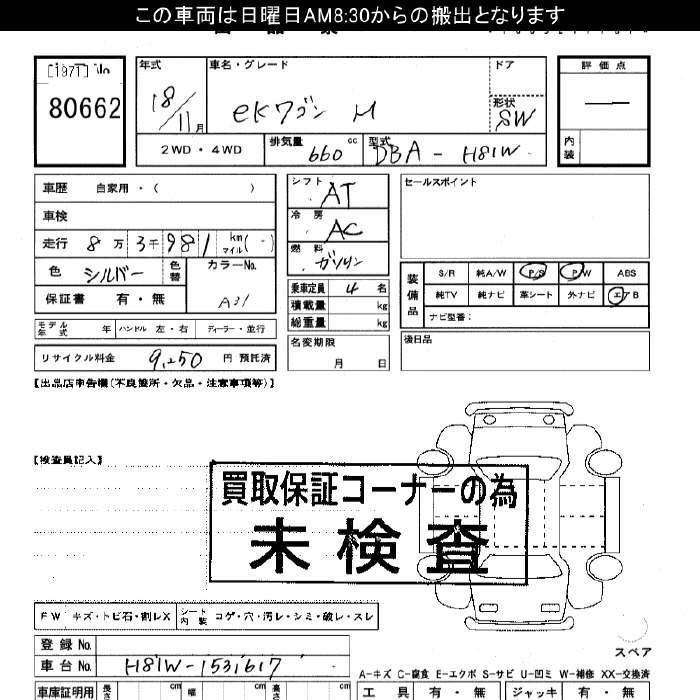 この車両は日曜日AM8:30からの搬出となります
[1971] No
80662
年式 車名・グレード ドア 評価点
18/11月 eKワゴン M 形状 SW
2WD・4WD 排気量 660cc 型式 DBA - H81W 内装
車歴 自家用・( )
車検
走行 8万3千981 km マイル(-)
色 シルバー 色替 カラーNo. A31
保証書 有・無
モデル年式 年 ハンドル 左・右 ディーラー・並行
リサイクル料金 9,250 円 預託済
シフト AT
冷房 AC
燃料 ガソリン
乗車定員 4 名
積載量 kg
総重量 kg
名変期限 月 日
セールスポイント
装備品 S/R 純A/W P/S P/W ABS
純TV 純ナビ 革シート 外ナビ エアB
ナビ型番:
後日品
【出品店申告欄(不良箇所・欠品・注意事項等)】
【検査員記入】
買取保証コーナーの為
未検査
FW キズ・トビ石・割レX シート内装 コゲ・穴・汚レ・シミ・破レ・スレ
登録No.
車台No. H81W-1531617
スペア
A-キズ C-腐食 E-エクボ S-サビ U-凹ミ W-補修 XX-交換済
車庫証明用 長さ cm 幅 cm 高さ cm 工具 有・無 ジャッキ 有・無